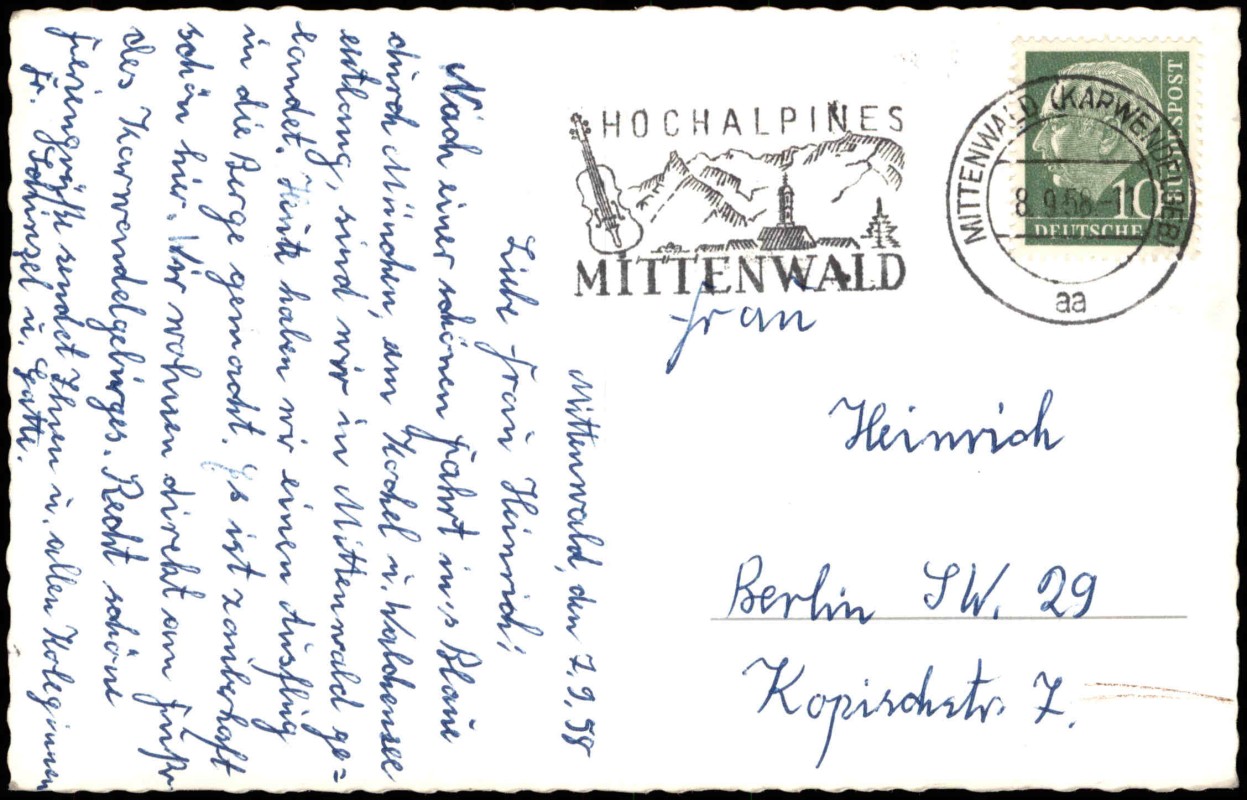 Mittenwald, den 7.9.58
Liebe Frau Heinrich,
Nach einer schönen Fahrt in's Blaue
durch München, am Kochel u. Walchensee
entlang, sind wir in Mittenwald ge=
landet. Heute haben wir einen Ausflug
in die Berge gemacht. Es ist zauberhaft
schön hier. Wir wohnen direkt am Fuße
des Karwendelgebirges. Recht schöne
Feriengrüße sendet Ihnen u. allen Koleginnen
Fr. u. Gatte.
HOCHALPINES
MITTENWALD
MITTENWALD (KARWENDELGEB)
8.9.58-11
aa
DEUTSCHE BUNDESPOST
10
Frau
Heinrich
Berlin SW. 29
Kopischstr. 7.